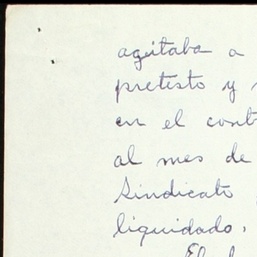 agitaba a
pretesto y
en el cont
al mes de
Sindicato
liquidado.
El